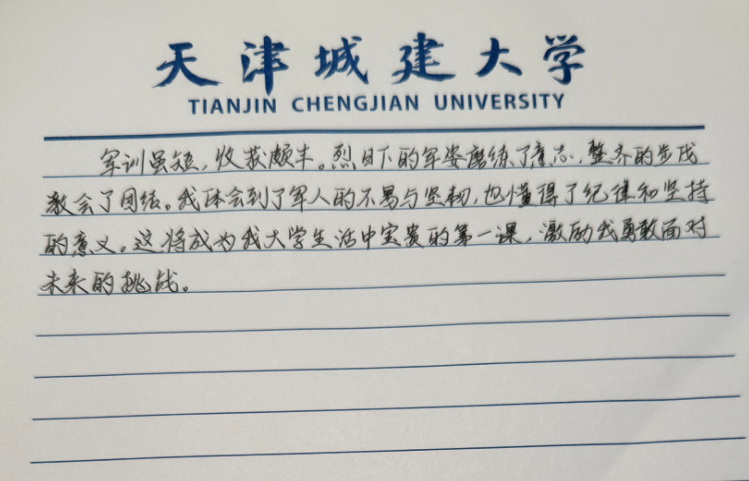 天津城建大学
TIANJIN CHENGJIAN UNIVERSITY
军训虽短，收获颇丰。烈日下的军姿磨练了意志，整齐的步伐
教会了团结。我体会到了军人的不易与坚韧，也懂得了纪律和坚持
的意义。这将成为我大学生活中宝贵的第一课，激励我勇敢面对
未来的挑战。